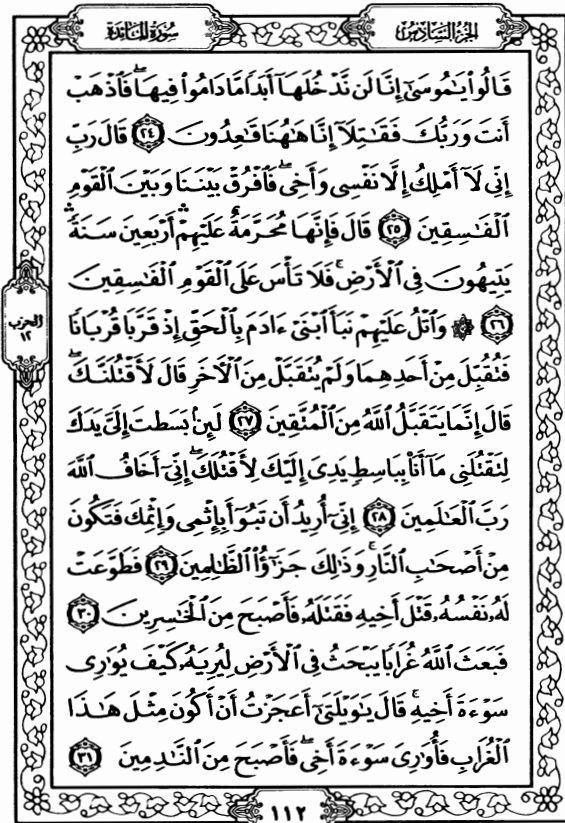 سورة المائدة
الجزء السادس
قَالُوا۟ يَٰمُوسَىٰٓ إِنَّا لَن نَّدْخُلَهَآ أَبَدًا مَّا دَامُوا۟ فِيهَا ۖ فَٱذْهَبْ
أَنتَ وَرَبُّكَ فَقَٰتِلَآ إِنَّا هَٰهُنَا قَٰعِدُونَ ٢٤ قَالَ رَبِّ
إِنِّى لَآ أَمْلِكُ إِلَّا نَفْسِى وَأَخِى ۖ فَٱفْرُقْ بَيْنَنَا وَبَيْنَ ٱلْقَوْمِ
ٱلْفَٰسِقِينَ ٢٥ قَالَ فَإِنَّهَا مُحَرَّمَةٌ عَلَيْهِمْ ۛ أَرْبَعِينَ سَنَةً ۛ
يَتِيهُونَ فِى ٱلْأَرْضِ ۚ فَلَا تَأْسَ عَلَى ٱلْقَوْمِ ٱلْفَٰسِقِينَ
٢٦ ۞ وَٱتْلُ عَلَيْهِمْ نَبَأَ ٱبْنَىْ ءَادَمَ بِٱلْحَقِّ إِذْ قَرَّبَا قُرْبَانًا
فَتُقُبِّلَ مِنْ أَحَدِهِمَا وَلَمْ يُتَقَبَّلْ مِنَ ٱلْءَاخَرِ قَالَ لَأَقْتُلَنَّكَ ۖ
قَالَ إِنَّمَا يَتَقَبَّلُ ٱللَّهُ مِنَ ٱلْمُتَّقِينَ ٢٧ لَئِنۢ بَسَطتَ إِلَىَّ يَدَكَ
لِتَقْتُلَنِى مَآ أَنَا۠ بِبَاسِطٍ يَدِىَ إِلَيْكَ لِأَقْتُلَكَ ۖ إِنِّىٓ أَخَافُ ٱللَّهَ
رَبَّ ٱلْعَٰلَمِينَ ٢٨ إِنِّىٓ أُرِيدُ أَن تَبُوٓأَ بِإِثْمِى وَإِثْمِكَ فَتَكُونَ
مِنْ أَصْحَٰبِ ٱلنَّارِ ۚ وَذَٰلِكَ جَزَٰٓؤُا۟ ٱلظَّٰلِمِينَ ٢٩ فَطَوَّعَتْ
لَهُۥ نَفْسُهُۥ قَتْلَ أَخِيهِ فَقَتَلَهُۥ فَأَصْبَحَ مِنَ ٱلْخَٰسِرِينَ ٣٠
فَبَعَثَ ٱللَّهُ غُرَابًا يَبْحَثُ فِى ٱلْأَرْضِ لِيُرِيَهُۥ كَيْفَ يُوَٰرِى
سَوْءَةَ أَخِيهِ ۚ قَالَ يَٰوَيْلَتَىٰٓ أَعَجَزْتُ أَنْ أَكُونَ مِثْلَ هَٰذَا
ٱلْغُرَابِ فَأُوَٰرِىَ سَوْءَةَ أَخِى ۖ فَأَصْبَحَ مِنَ ٱلنَّٰدِمِينَ ٣١
الحزب
١٢
١١٢